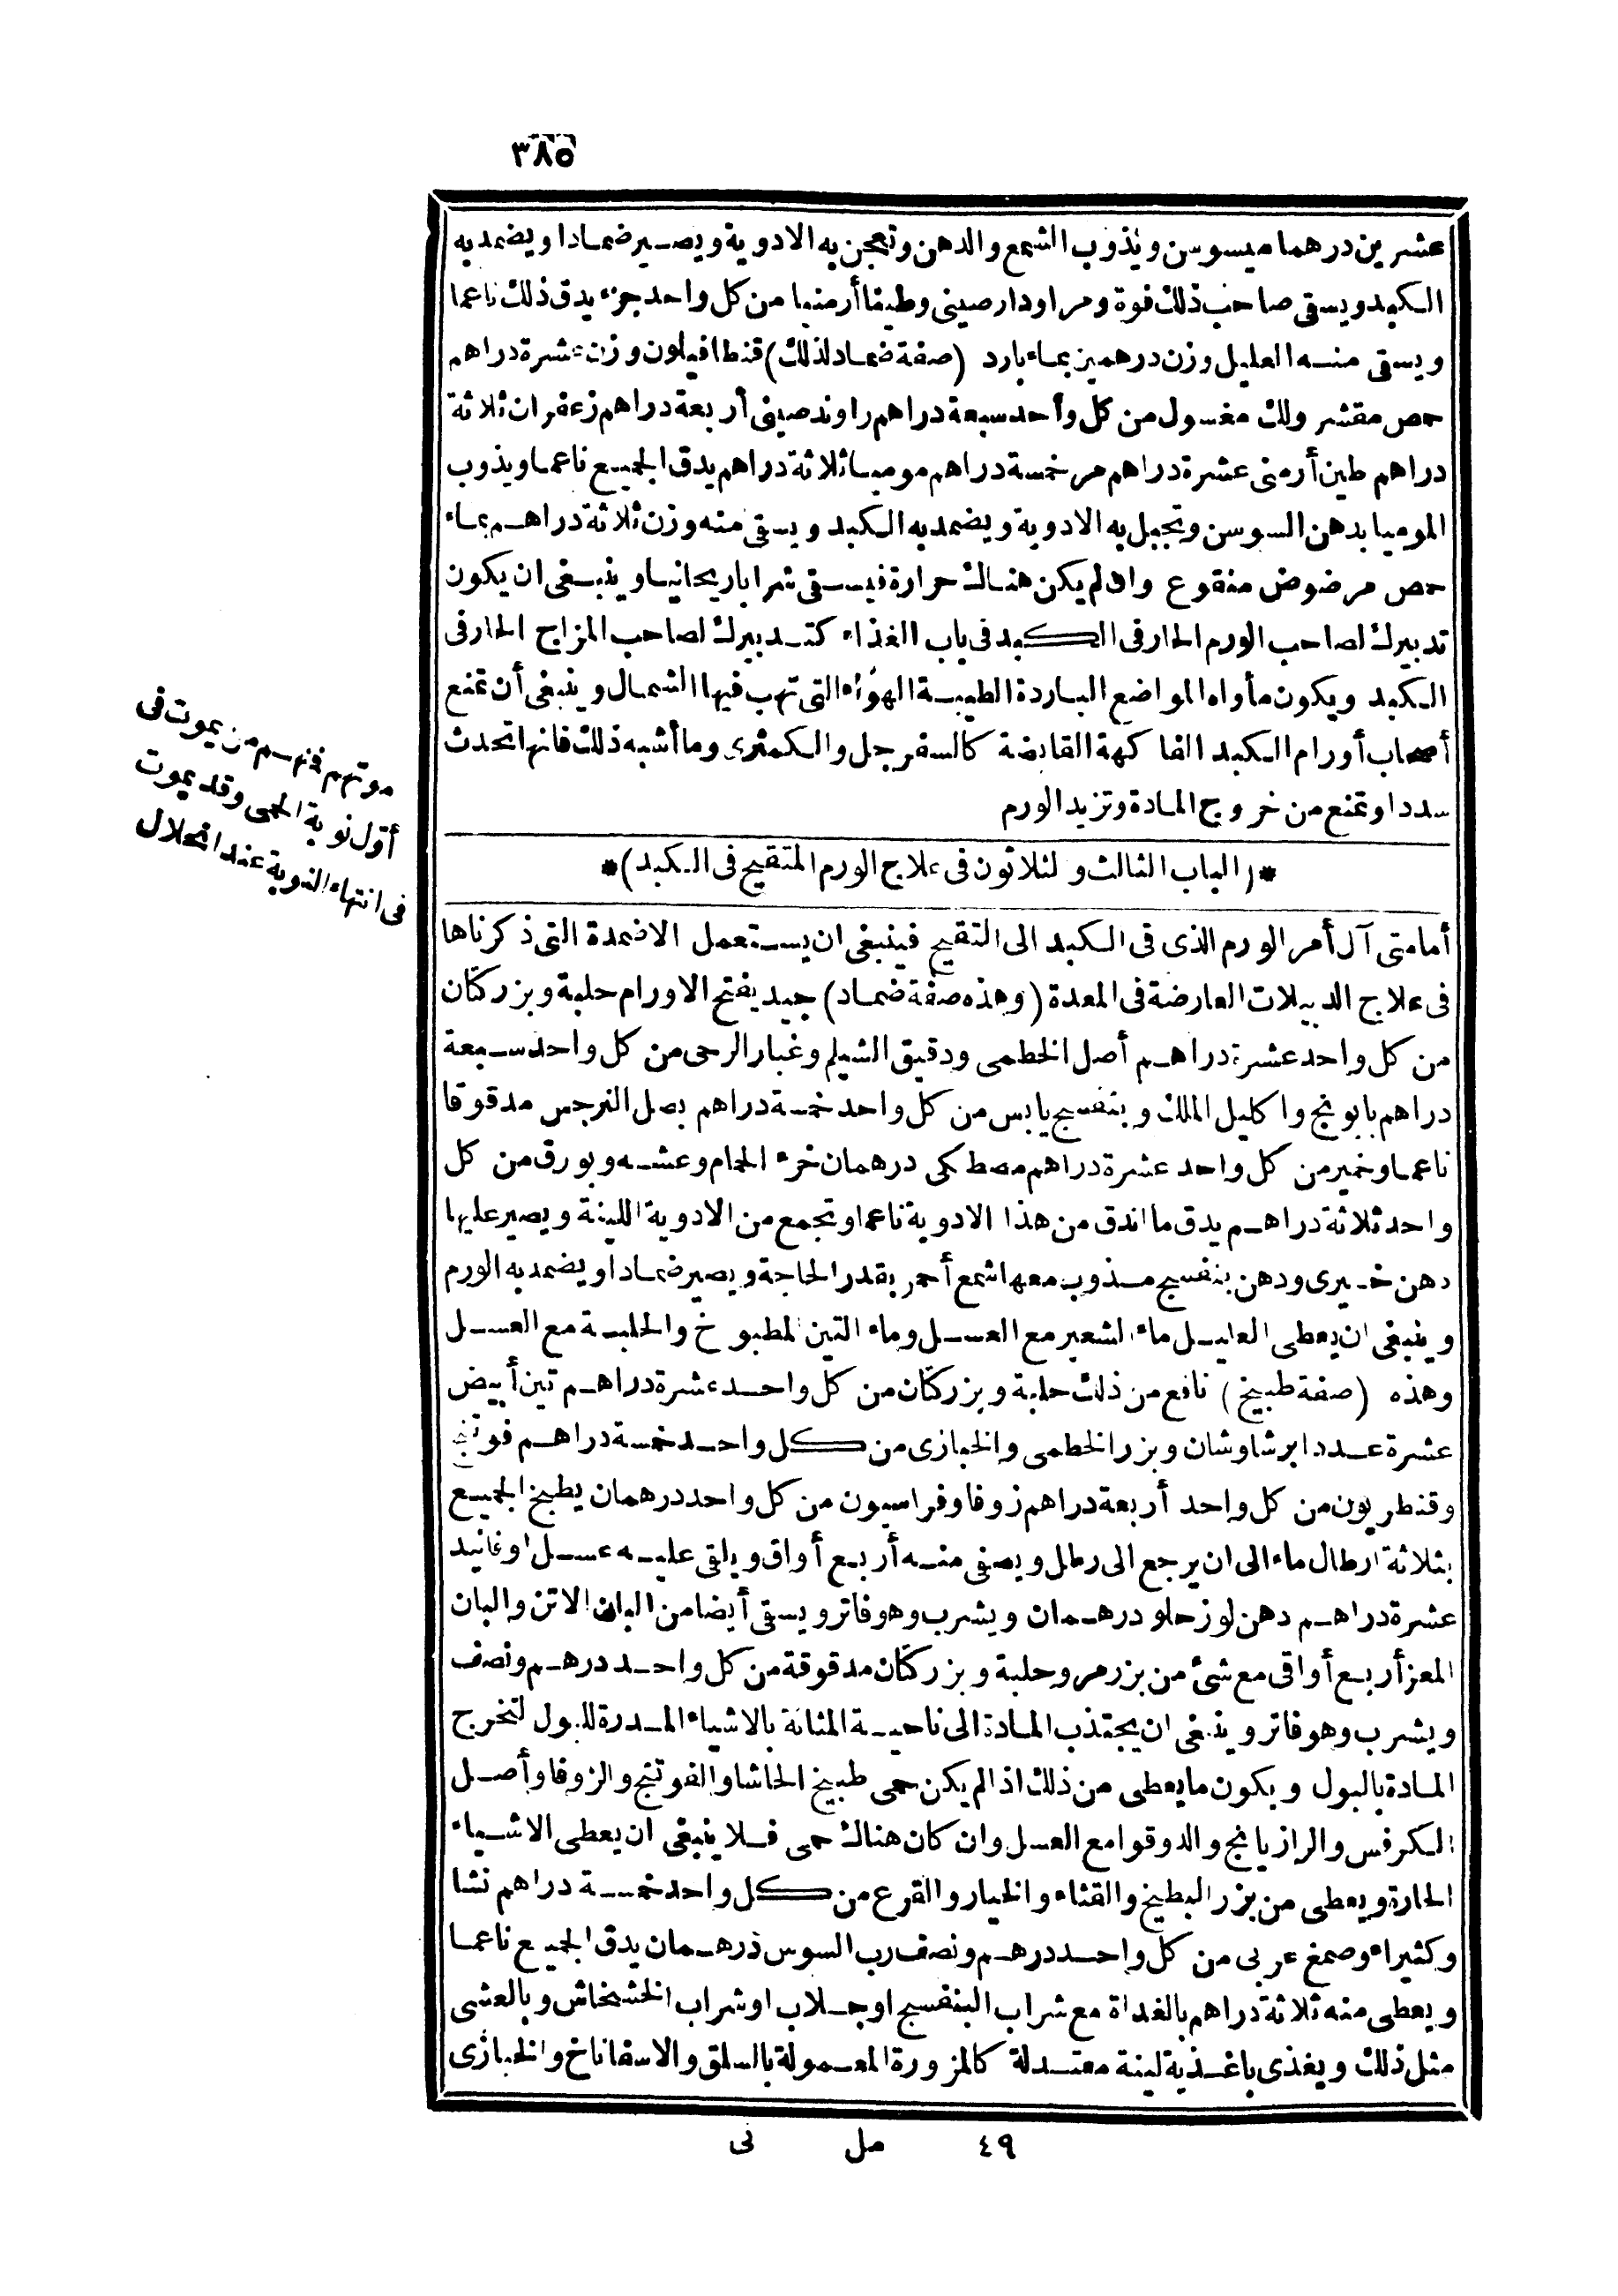 ٣٨٥
عشرين درهما ميسوسن ويذوب الشمع والدهن وتعجن به الادوية ويصير ضمادا ويضمد به
الكبد ويسقى صاحب ذلك فوة ومر اودار صينى وطينا أرمنيا من كل واحد جزء يدق ذلك ناعما
ويسقى منه العليل وزن درهمين بماء بارد (صفة ضماد لذلك) قنطافيلون وزن عشرة دراهم
حمص مقشر ولك مغسول من كل وأحد سبعة دراهم راوند صينى أربعة دراهم زعفران ثلاثة
دراهم طين أرمنى عشرة دراهم مر خمسة دراهم موميا ثلاثة دراهم يدق الجميع ناعما ويذوب
الموميا بدهن السوسن وتجبل به الادوية ويضمد به الكبد ويسقى منه وزن ثلاثة دراهم بماء
حمص مرضوض منقوع وان لم يكن هناك حرارة فيسقى شرابا ريحانيا وينبغى ان يكون
تدبيرك لصاحب الورم الحار فى الكبد فى باب الغذاء كتدبيرك لصاحب المزاج الحار فى
الكبد ويكون مأواه المواضع الباردة الطيبة الهواء التى تهب فيها الشمال وينبغى أن تمنع
أصحاب أورام الكبد الفاكهة القابضة كالسفرجل والكمثرى وما أشبه ذلك فانها تحدث
سددا وتمنع من خروج المادة وتزيد الورم
*(الباب الثالث والثلاثون فى علاج الورم المتقيح فى الكبد)*
أما متى آل أمر الورم الذى فى الكبد الى التقيح فينبغى ان يستعمل الاضمدة التى ذكرناها
فى علاج الدبيلات العارضة فى المعدة (وهذه صفة ضماد) جيد يفتح الاورام حلبة وبزركتان
من كل واحد عشرة دراهم أصل الخطمى ودقيق الشيلم وغبار الرحى من كل واحد سبعة
دراهم بابونج واكليل الملك وبنفسج يابس من كل واحد خمسة دراهم بصل النرجس مدقوقا
ناعما وخمير من كل واحد عشرة دراهم مصطكى درهمان خرء الحمام وعشه وبورق من كل
واحد ثلاثة دراهم يدق ما اندق من هذا الادوية ناعما وتجمع من الادوية اللينة ويصير عليها
دهن خيرى ودهن بنفسج مذوب معها شمع أحمر بقدر الحاجة ويصير ضمادا ويضمد به الورم
وينبغى ان يعطى العليل ماء الشعير مع العسل وماء التين المطبوخ والحلبة مع العسل
وهذه (صفة طبيخ) نافع من ذلك حلبة وبزركتان من كل واحد عشرة دراهم تين أبيض
عشرة عددا برشاوشان وبزر الخطمى والخبازى من كل واحد خمسة دراهم فوتنج
وقنطريون من كل واحد أربعة دراهم زوفا وفراسيون من كل واحد درهمان يطبخ الجميع
بثلاثة ارطال ماء الى ان يرجع الى رطل ويصفى منه أربع أواق ويلقى عليه عسل او فانيد
عشرة دراهم دهن لوز حلو درهمان ويشرب وهو فاتر ويسقى أيضا من البان الاتن والبان
المعز أربع أواقى مع شئ من بزر مر وحلبة وبزركتان مدقوقة من كل واحد درهم ونصف
ويشرب وهو فاتر وينبغى ان يجتذب المادة الى ناحية المثانة بالاشياء المدرة للبول لتخرج
المادة بالبول ويكون ما يعطى من ذلك اذا لم يكن حمى طبيخ الحاشا والفوتنج والزوفا وأصل
الكرفس والرازيانج والدوقوا مع العسل وان كان هناك حمى فلا ينبغى ان يعطى الاشياء
الحارة ويعطى من بزر البطيخ والقثاء والخيار والقرع من كل واحد خمسة دراهم نشا
وكثيراء وصمغ عربى من كل واحد درهم ونصف رب السوس درهمان يدق الجميع ناعما
ويعطى منه ثلاثة دراهم بالغداة مع شراب البنفسج او جلاب او شراب الخشخاش وبالعشى
مثل ذلك ويغذى باغذية لينة معتدلة كالمزورة المعمولة بالسلق والاسفاناخ والخبازى
موتهم فمنهم من يموت فى
أول نوبة الحمى وقد يموت
فى انتهاء النوبة عند انحلال
٤٩ مل نى